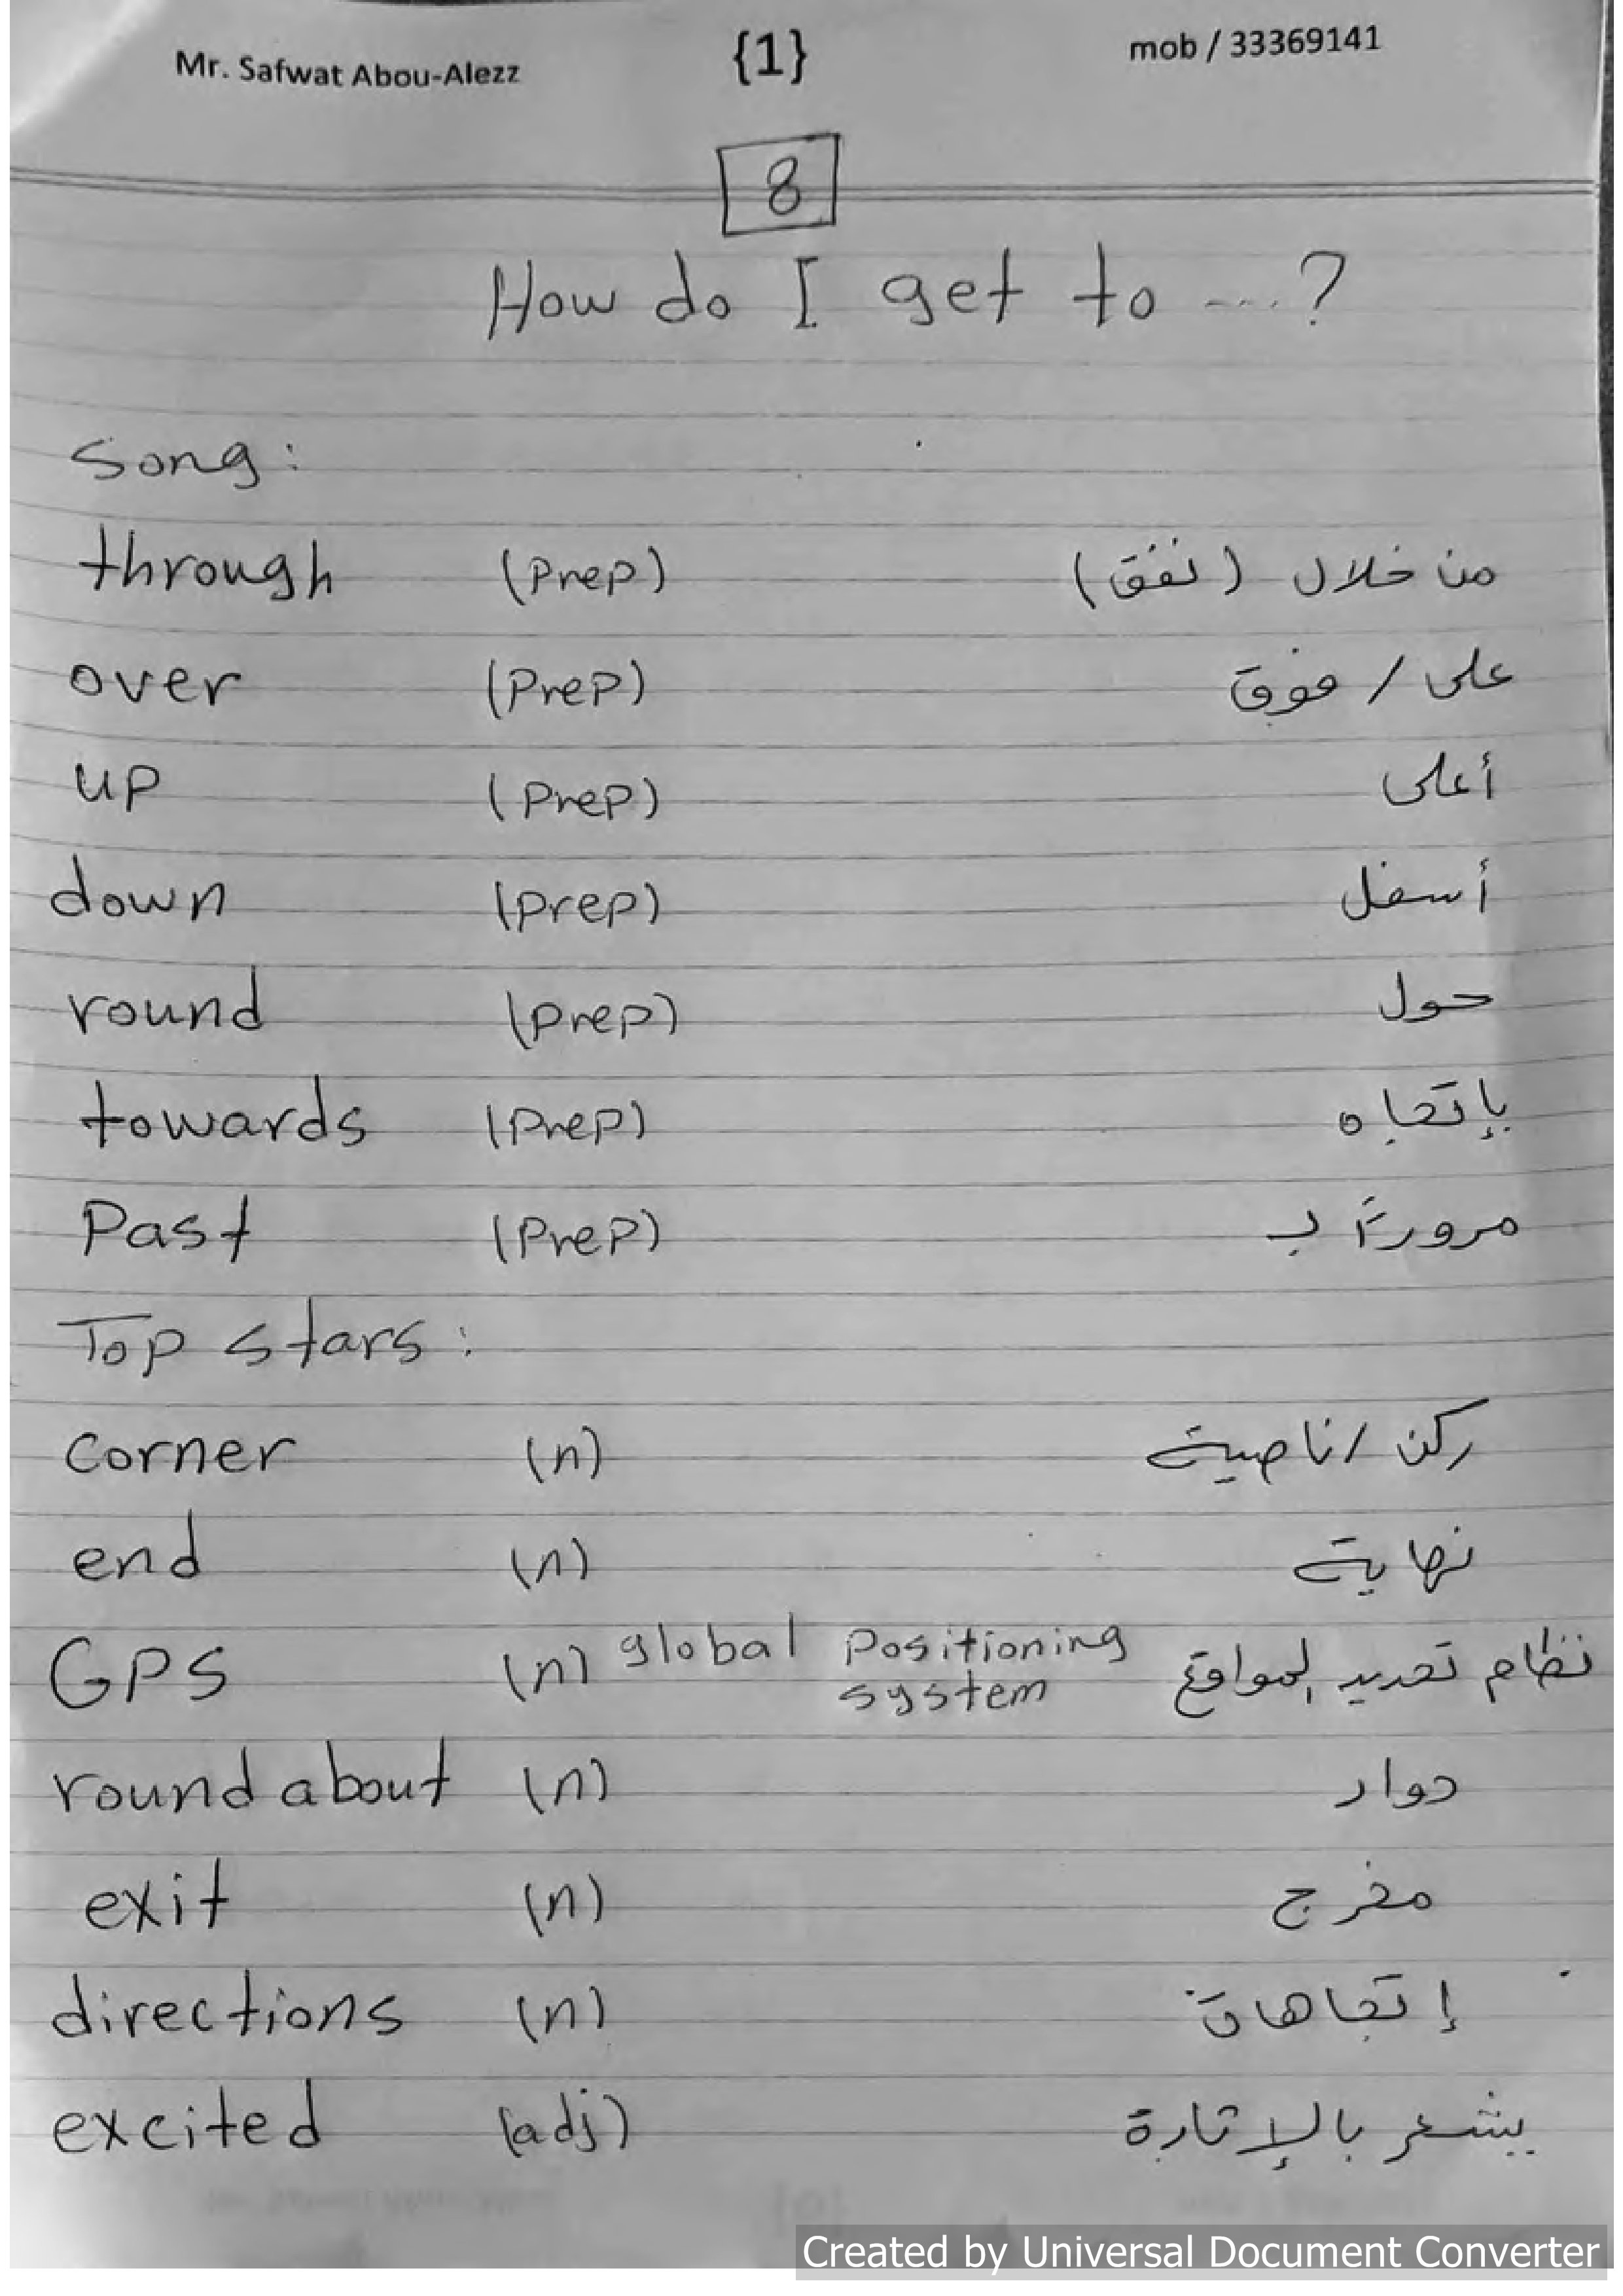 Mr. Safwat Abou-Alezz {1} mob / 33369141
8
How do I get to ....?
Song:
through (prep) من خلال (نفق)
over (prep) على / فوق
up (prep) أعلى
down (prep) أسفل
round (prep) حول
towards (prep) بإتجاه
Past (prep) مروراً بـ
Top stars:
corner (n) ركن / ناصية
end (n) نهاية
GPS (n) global positioning system نظام تحديد المواقع
roundabout (n) دوار
exit (n) مخرج
directions (n) إتجاهات
excited (adj) يشعر بالإثارة
Created by Universal Document Converter